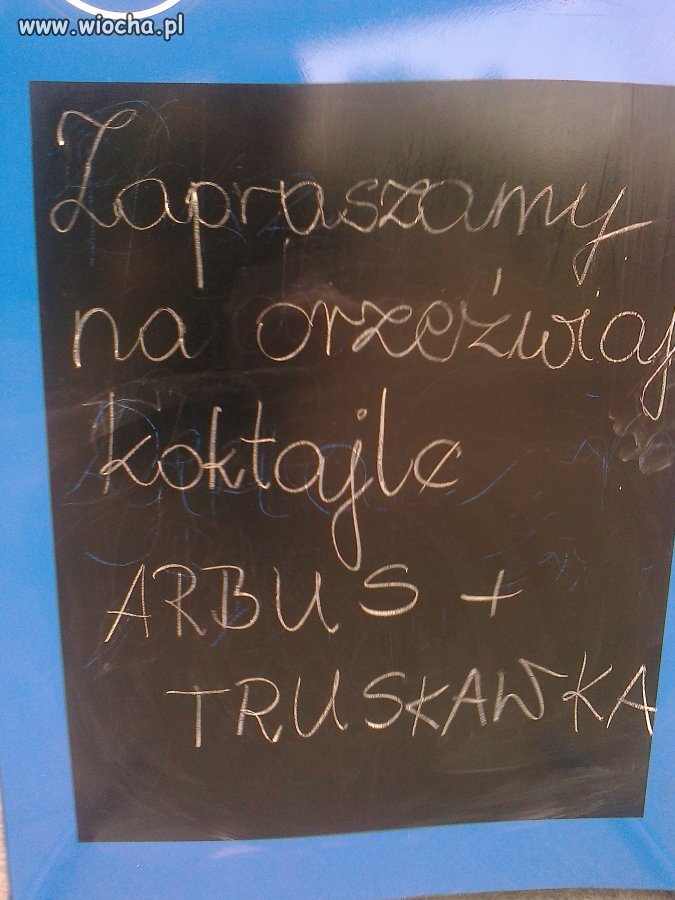 www.wiocha.pl
Zapraszamy
na orzeźwiaj
koktajle
ARBUS +
TRUSKAWKA